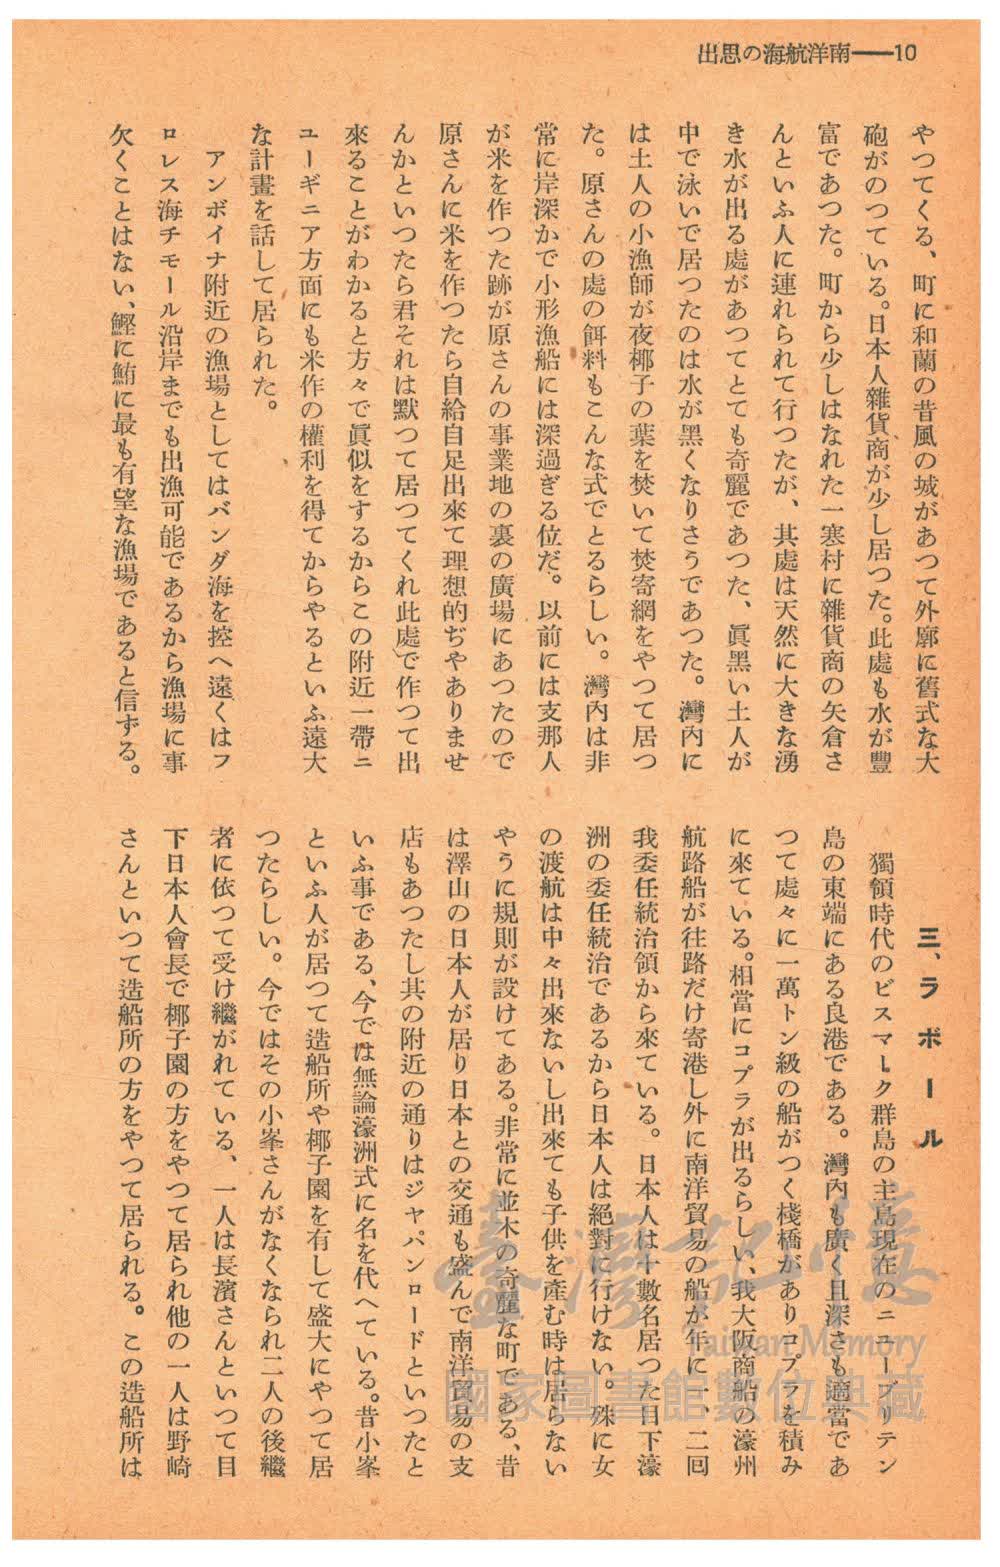 出思の海航洋南──10
やつてくる、町に和蘭の昔風の城があつて外廓に舊式な大
砲がのつている。日本人雜貨商が少し居つた。此處も水が豐
富であつた。町から少しはなれた一寒村に雜貨商の矢倉さ
んといふ人に連れられて行つたが、其處は天然に大きな湧
き水が出る處があつてとても奇麗であつた、眞黑い土人が
中で泳いで居つたのは水が黑くなりさうであつた。灣内に
は土人の小漁師が夜椰子の葉を焚いて焚寄網をやつて居つ
た。原さんの處の餌料もこんな式でとるらしい。灣内は非
常に岸深かで小形漁船には深過ぎる位だ。以前には支那人
が米を作つた跡が原さんの事業地の裏の廣場にあつたので
原さんに米を作つたら自給自足出來て理想的ぢやありませ
んかといつたら君それは默つて居つてくれ此處で作つて出
來ることがわかると方々で眞似をするからこの附近一帶ニ
ユーギニア方面にも米作の權利を得てからやるといふ遠大
な計畫を話して居られた。
アンボイナ附近の漁場としてはバンダ海を控へ遠くはフ
ロレス海チモール沿岸までも出漁可能であるから漁場に事
欠くことはない、鰹に鮪に最も有望な漁場であると信ずる。
三、ラボール
獨領時代のビスマーク群島の主島現在のニユーブリテン
島の東端にある良港である。灣内も廣く且深さも適當であ
つて處々に一萬トン級の船がつく棧橋がありコプラを積み
に來ている。相當にコプラが出るらしい、我大阪商船の濠州
航路船が往路だけ寄港し外に南洋貿易の船が年に一、二回
我委任統治領から來ている。日本人は十數名居つた目下濠
洲の委任統治であるから日本人は絕對に行けない。殊に女
の渡航は中々出來ないし出來ても子供を產む時は居らない
やうに規則が設けてある。非常に並木の奇麗な町である、昔
は澤山の日本人が居り日本との交通も盛んで南洋貿易の支
店もあつたし其の附近の通りはジヤパンロードといつたと
いふ事である、今では無論濠洲式に名を代へている。昔小峯
といふ人が居つて造船所や椰子園を有して盛大にやつて居
つたらしい。今ではその小峯さんがなくなられ二人の後繼
者に依つて受け繼がれている、一人は長濱さんといつて目
下日本人會長で椰子園の方をやつて居られ他の一人は野崎
さんといつて造船所の方をやつて居られる。この造船所は
臺灣記憶
Taiwan Memory
國家圖書館數位典藏